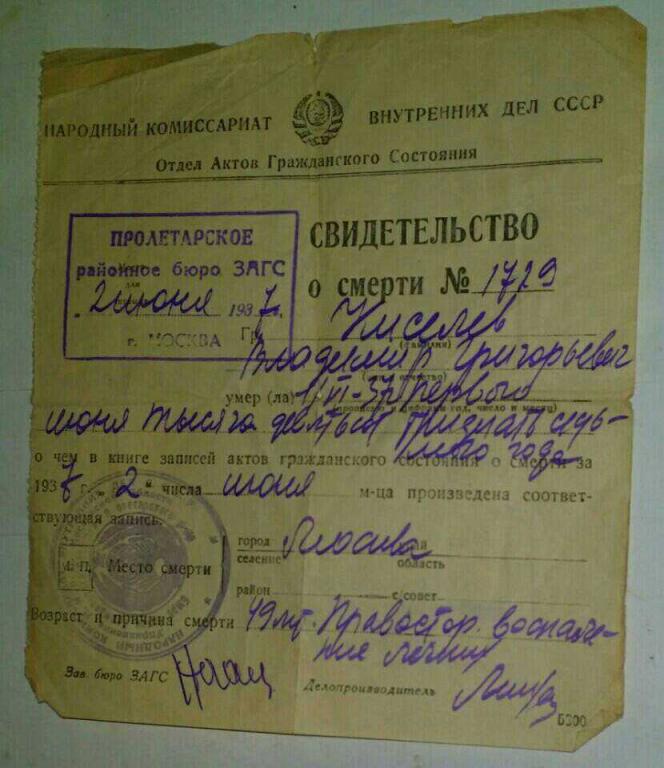 НАРОДНЫЙ КОМИССАРИАТ ВНУТРЕННИХ ДЕЛ СССР
Отдел Актов Гражданского Состояния
ПРОЛЕТАРСКОЕ
районное бюро ЗАГС
"2 июня 1937 г.
г. МОСКВА
СВИДЕТЕЛЬСТВО
о смерти № 1729
Гр. Киселев
(фамилия)
Владимир Григорьевич
отчество)
умер (ла) 1/VI-37 первого
прописью и цифрами год, число и месяц)
июня тысяча девятьсот тридцать седь-
мого года
о чем в книге записей актов гражданского состояния о смерти за
1937 г. "2" числа июня м-ца произведена соответ-
ствующая запись.
М. П. Место смерти
город Москва
селение
край
область
район с/совет
Возраст и причина смерти 49 лет. Правостор. воспале-
ние легких
Зав. бюро ЗАГС
Делопроизводитель